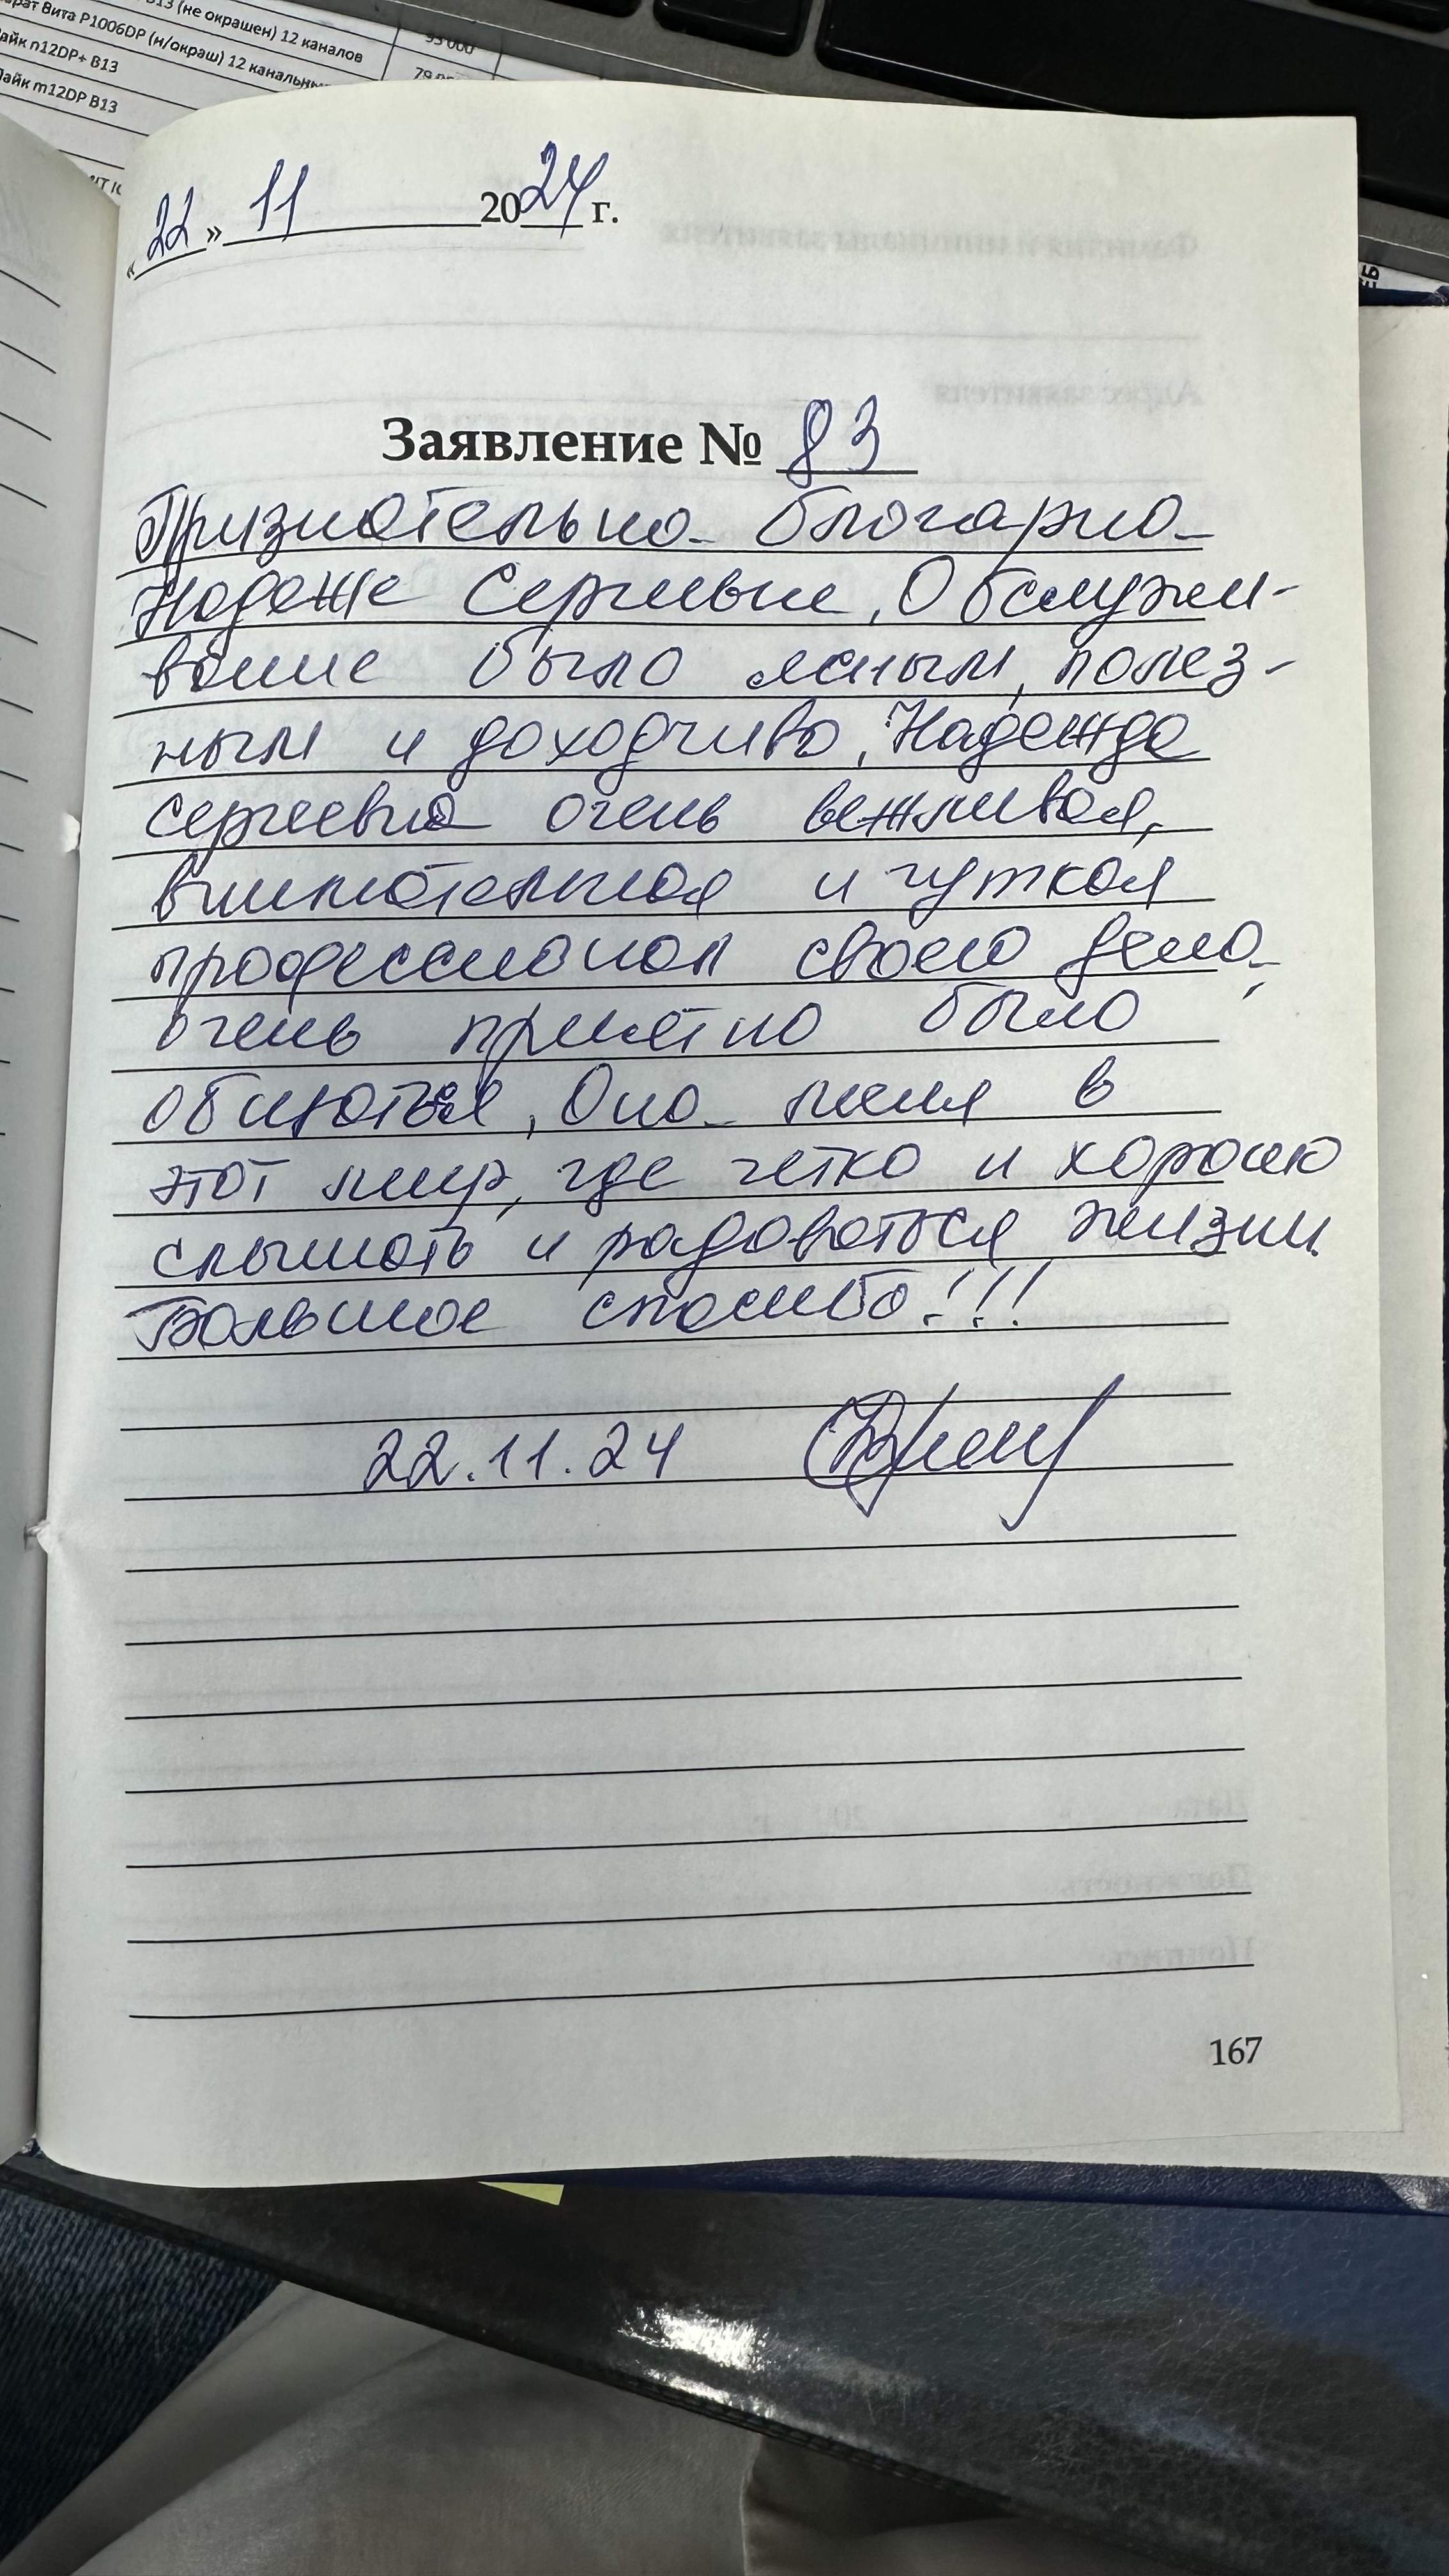 В13 (не окрашен) 12 каналов
арат Вита Р1006DP (н/окраш) 12 канальны
айк n12DP+ В13
Лайк m12DP В13
« 22 » 11 2024 г.
Заявление № 83
Признательно благарна
Надежде Сергеевне, Обслужи-
вание было ясным, полез-
ным и доходчиво, Надежда
Сергеевна очень вежливая,
внимательная и чуткая
профессионал своего дела,
очень приятно было
общаться, Она меня в
этот мир, где четко и хорошо
слышать и радоваться жизни
Большое спасибо!!!
22.11.24
167